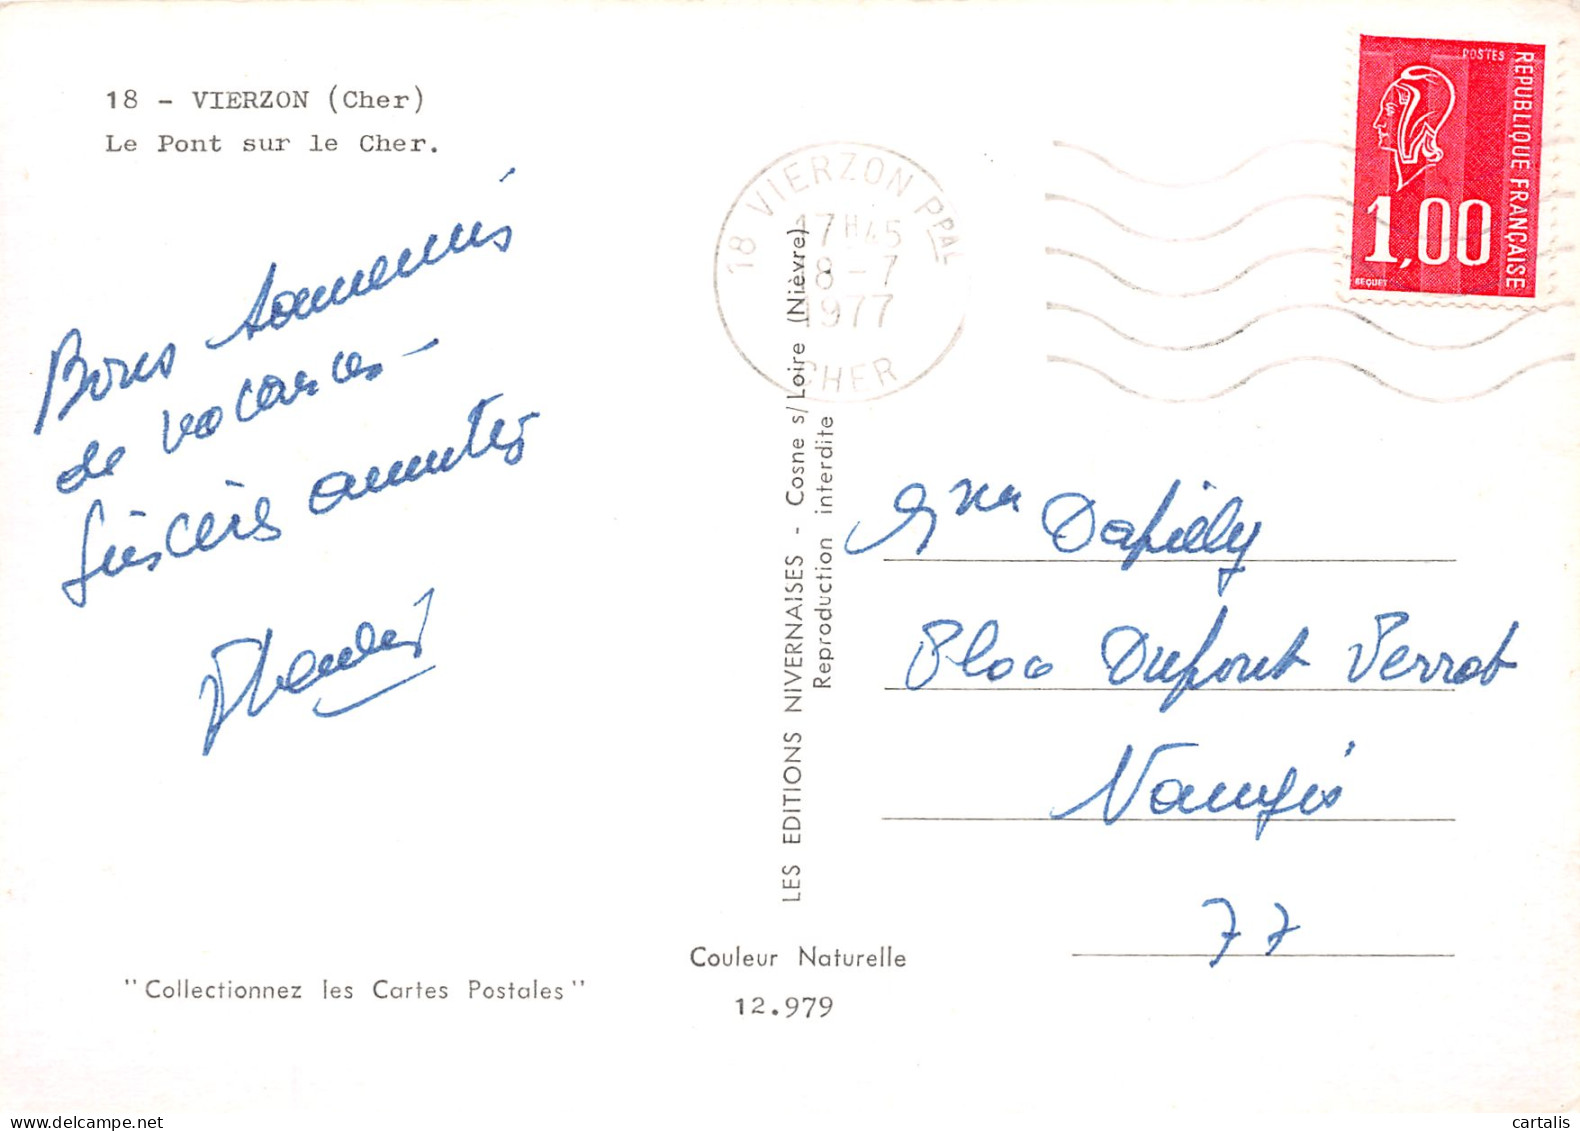 18 - VIERZON (Cher)
Le Pont sur le Cher.
Bons souvenirs
de vacances -
Sincères amitiés
18 VIERZON PPAL
17H45
18-7
1977
CHER
POSTES
REPUBLIQUE FRANÇAISE
1,00
BEQUET
LES EDITIONS NIVERNAISES - Cosne s/Loire (Nièvre)
Reproduction interdite
Mme Dapilly
Bloc Dupont Perrot
Nangis
77
Couleur Naturelle
12.979
"Collectionnez les Cartes Postales"
cartalis